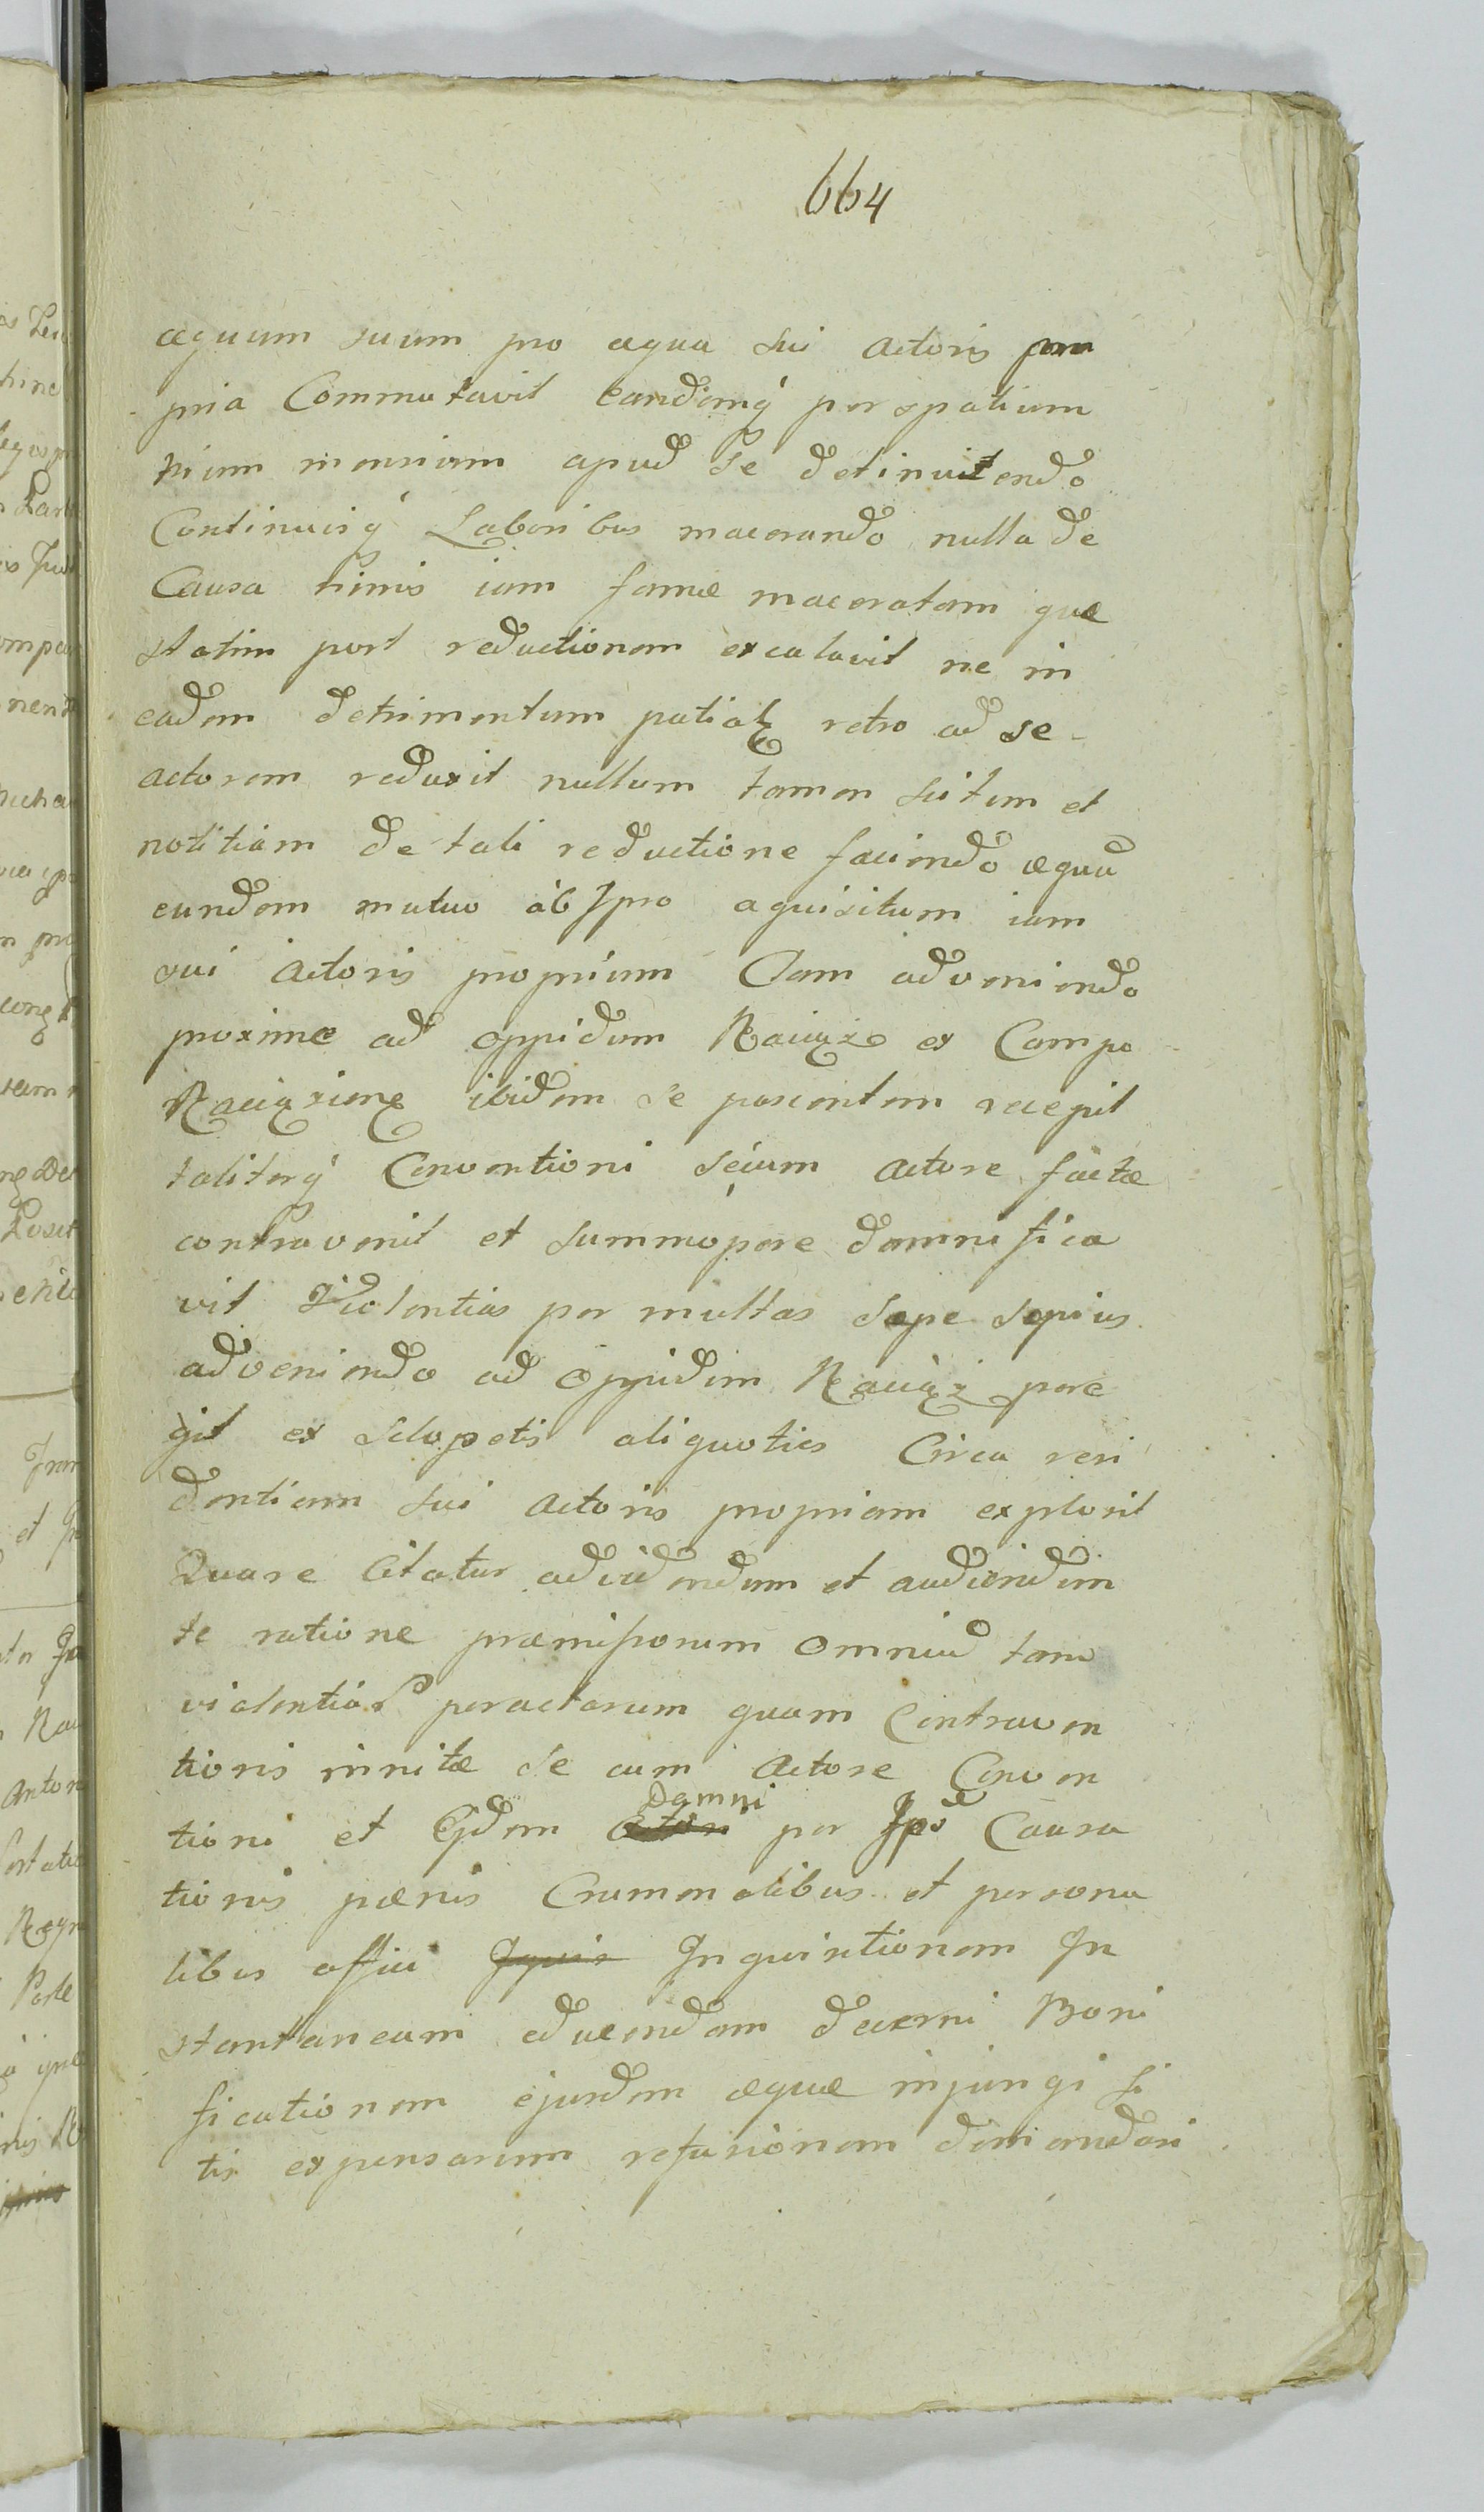 664
æquum suum pro æqua sui actoris pro
pria Commutavit eandemq́ per spatium
trium mensium apud se detinuit endo
Continuisq́ Laboribus macerando nulla de
Causa nimis iam fame maceratam quæ
statim post reductionem excalavit ne in
eadem detrimentum patiat retro ad se
actorem reduxit nullum tamen scitum et
notitiam de tali reductione faciendo æquū
eundem mutuo ab Ipso aquisitum iam
sui Actoris proprium Clam adveniendo
proxime ad oppidum Raciąże ex Campo
Raciązieng ibidem se pascentem recepit
taliterq́ Conventioni secum actore factæ
contravenit et summopere damnifica
vit Violentias per multas sæpe sæpius
adveniendo ad Oppidum Raciąż pere
git ex sclopetis aliquoties Circa resi
dentiam sui actoris propriam explosit
Quare Citatur ad videndum et audiendum
se ratione præmissorum omniū tam
violentiar peractarum quam Contraven
tionis initæ se cum Actore Conven
tioni et Ejdem Actori Damni per Ipsū Causa
tionis pænis Crimenalibus et persona
libus affici Iquis Inquisitionem In
stantaneam educendam decerni Boni
ficationem ejusdem æquæ injungi li
tis expensarum refusionem demandari